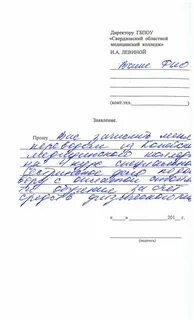 Директору ГБПОУ
«Свердловский областной
медицинский колледж»
И.А. ЛЕВИНОЙ
Ваше ФИО
(конт.тел.)
Заявление.
Прошу Вас зачислить меня
переводом из Копейского
медицинского колледжа
на курс специальность
Сестринское дело
с оплатой
обучения за счет
средств физического
«___»___________201__ г.
(подпись)